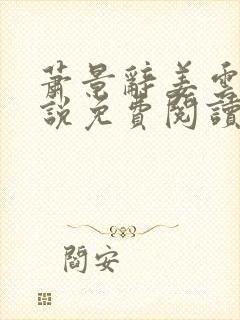 蕭景辭姜雲
說免費閱讀
閻安